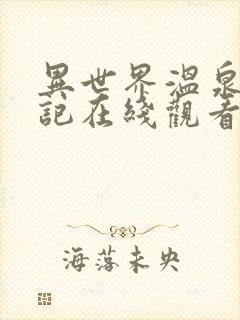 異世界溫泉
記在綫觀看
海落未央